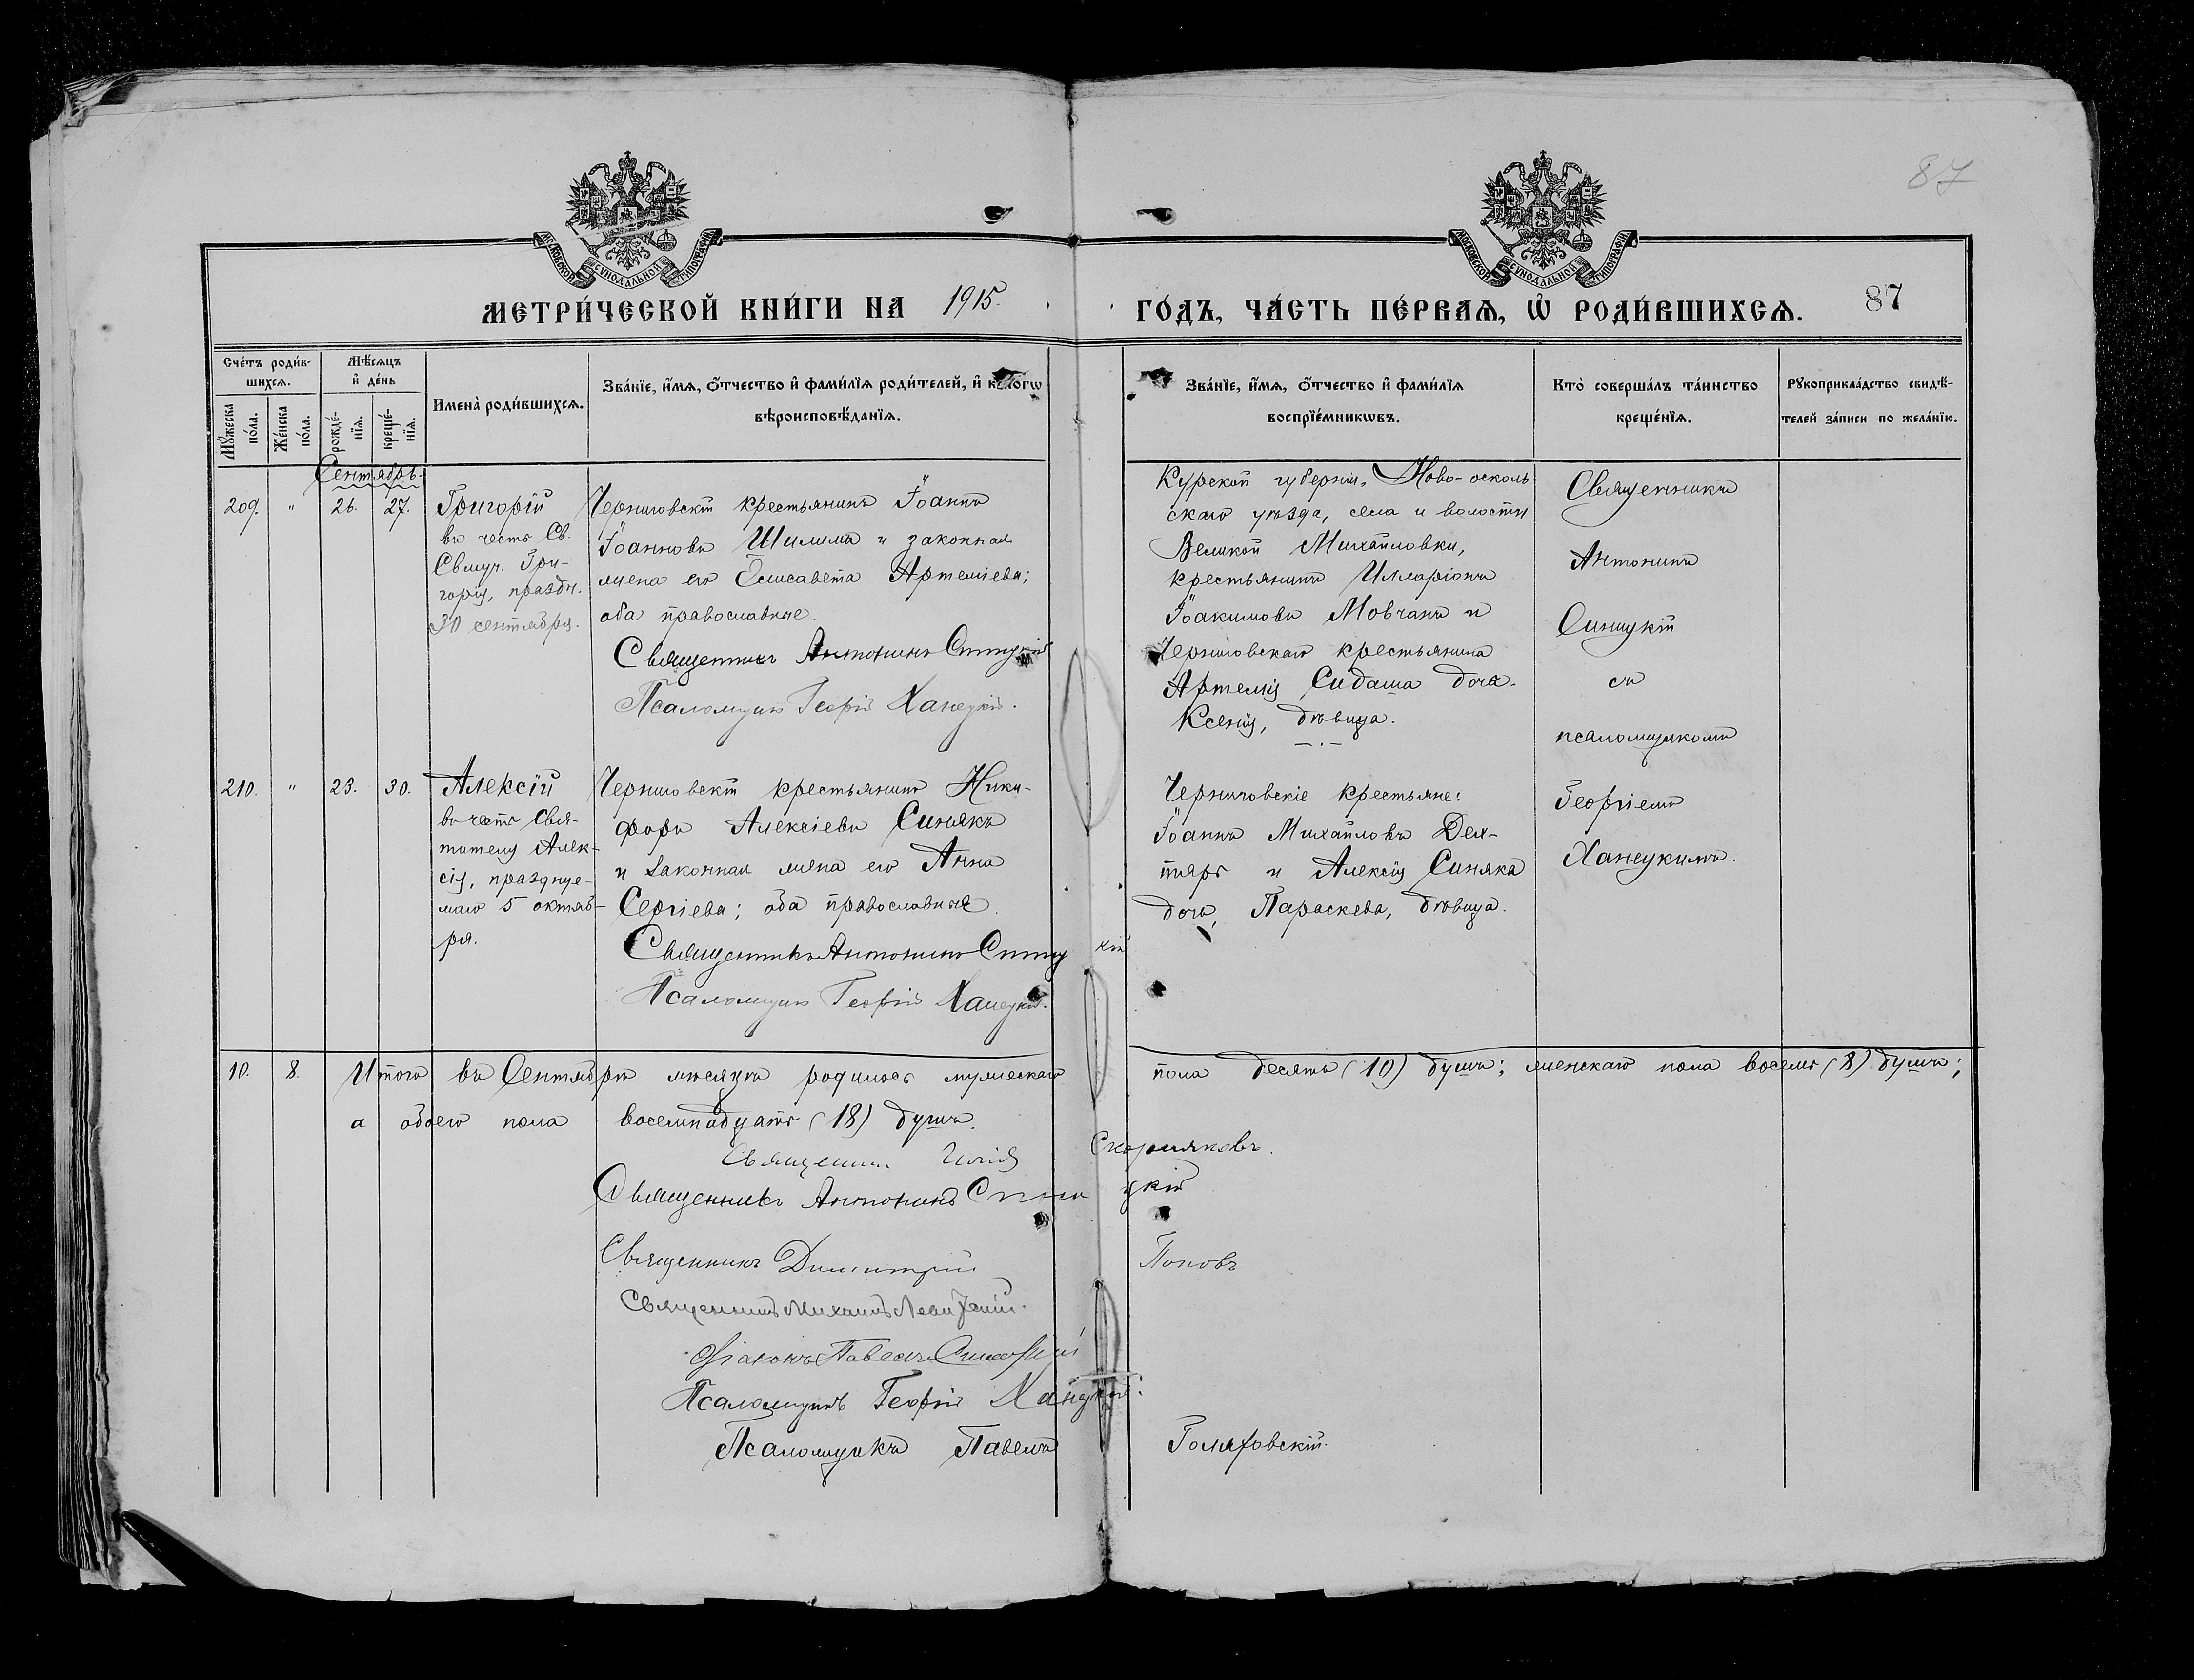 87
МОСКОВСКОЙ СѴНОДАЛЬНОЙ ТИПОГРАФІИ
МОСКОВСКОЙ СѴНОДАЛЬНОЙ ТИПОГРАФІИ
МЕТРИ́ЧЕСКОЙ КНИ́ГИ НА 1915. ГО́ДЪ, ЧА́СТЬ ПЕ́РВАѦ, Ѡ҆ РОДИ́ВШИХСѦ. 87
Сче́тъ роди́в-
шихсѧ.
Мѣ́сѧцъ
и҆ де́нь
Мꙋ́жеска
по́ла.
Же́нска
по́ла.
рожде́-
нїѧ.
креще́-
нїѧ.
Имена̀ роди́вшихсѧ.
Зва́нїе, и҆́мѧ, ѻ҆́тчество и҆ фами́лїѧ роди́телей, и҆ ко́гѡ
вѣроисповѣ́данїѧ.
Зва́нїе, и҆́мѧ, ѻ҆́тчество и҆ фами́лїѧ
воспрїе́мникѡвъ.
Кто̀ соверша́лъ та́инство
креще́нїѧ.
Рꙋкоприкла́дство свидѣ́-
телей за́писи по жела́нїю.
Сентябрь.
209. " 26. 27.
Григорій
въ честь Св.
Свмуч. Гри-
горія, праздн.
30 сентября.
Черниговскій крестьянинъ Іоаннъ
Іоанновъ Шилима и законная
жена его Елисавета Артеміева;
оба православные.
Священникъ Антонинъ Синицкій
Псаломщикъ Георгій Ханецкій.
Курской губерніи, Ново-осколь-
скаго уѣзда, села и волости
Великой Михайловки,
крестьянинъ Илларіонъ
Іоакимовъ Мовчанъ и
Черниговскаго крестьянина
Артемія Сидаша дочь
Ксенія, дѣвица.
Священникъ
Антонинъ
Синицкій
съ
псаломщикомъ
Георгіемъ
Ханецкимъ.
210. " 23. 30.
Алексій
въ честь Свя-
тителя Алек-
сія, празднуе-
маго 5 октяб-
ря.
Черниговскій крестьянинъ Ники-
форъ Алексіевъ Синякъ
и законная жена его Анна
Сергіева; оба православные.
Священникъ Антонинъ Синицкій
Псаломщикъ Георгій Ханецкій.
Черниговскіе крестьяне:
Іоаннъ Михайловъ Дег-
тярь и Алексія Синяка
дочь, Параскева, дѣвица.
10. 8. Итого въ Сентябрѣ мѣсяцѣ родилось мужескаго пола десять (10) душъ; женскаго пола восемь (8) душъ;
а обоего пола восемнадцать (18) душъ.
Священникъ Илія Скорняковъ.
Священникъ Антонинъ Синицкій
Священникъ Димитрій Поповъ
Священникъ Михаилъ
Діаконъ Павелъ
Псаломщикъ Георгій Ханецкій.
Псаломщикъ Павелъ